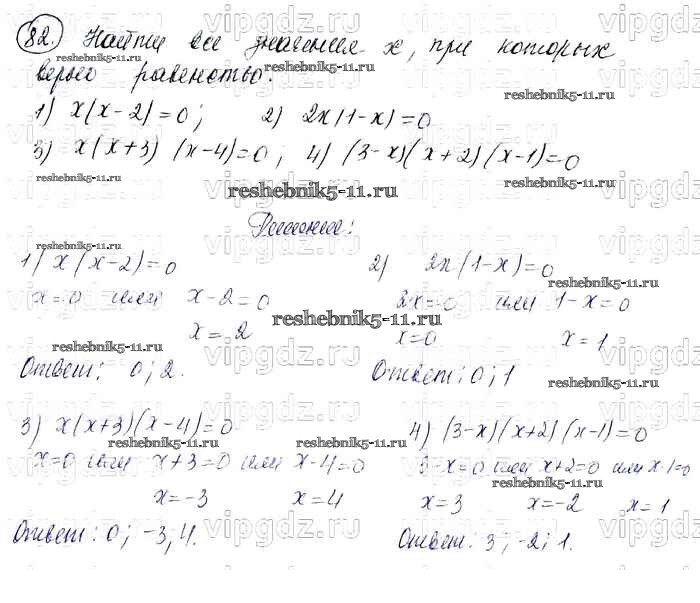 82. Найти все значения x, при которых
верно равенство.
1) x(x-2)=0; 2) 2x(1-x)=0
3) x(x+3)(x-4)=0; 4) (3-x)(x+2)(x-1)=0
Решение:
1) x(x-2)=0
x=0 или x-2=0
x=2
Ответ: 0; 2.
2) 2x(1-x)=0
2x=0 или 1-x=0
x=0 x=1
Ответ: 0; 1
3) x(x+3)(x-4)=0
x=0 или x+3=0 или x-4=0
x=-3 x=4
Ответ: 0; -3; 4.
4) (3-x)(x+2)(x-1)=0
3-x=0 или x+2=0 или x-1=0
x=3 x=-2 x=1
Ответ: 3; -2; 1.
reshebnik5-11.ru
vipgdz.ru